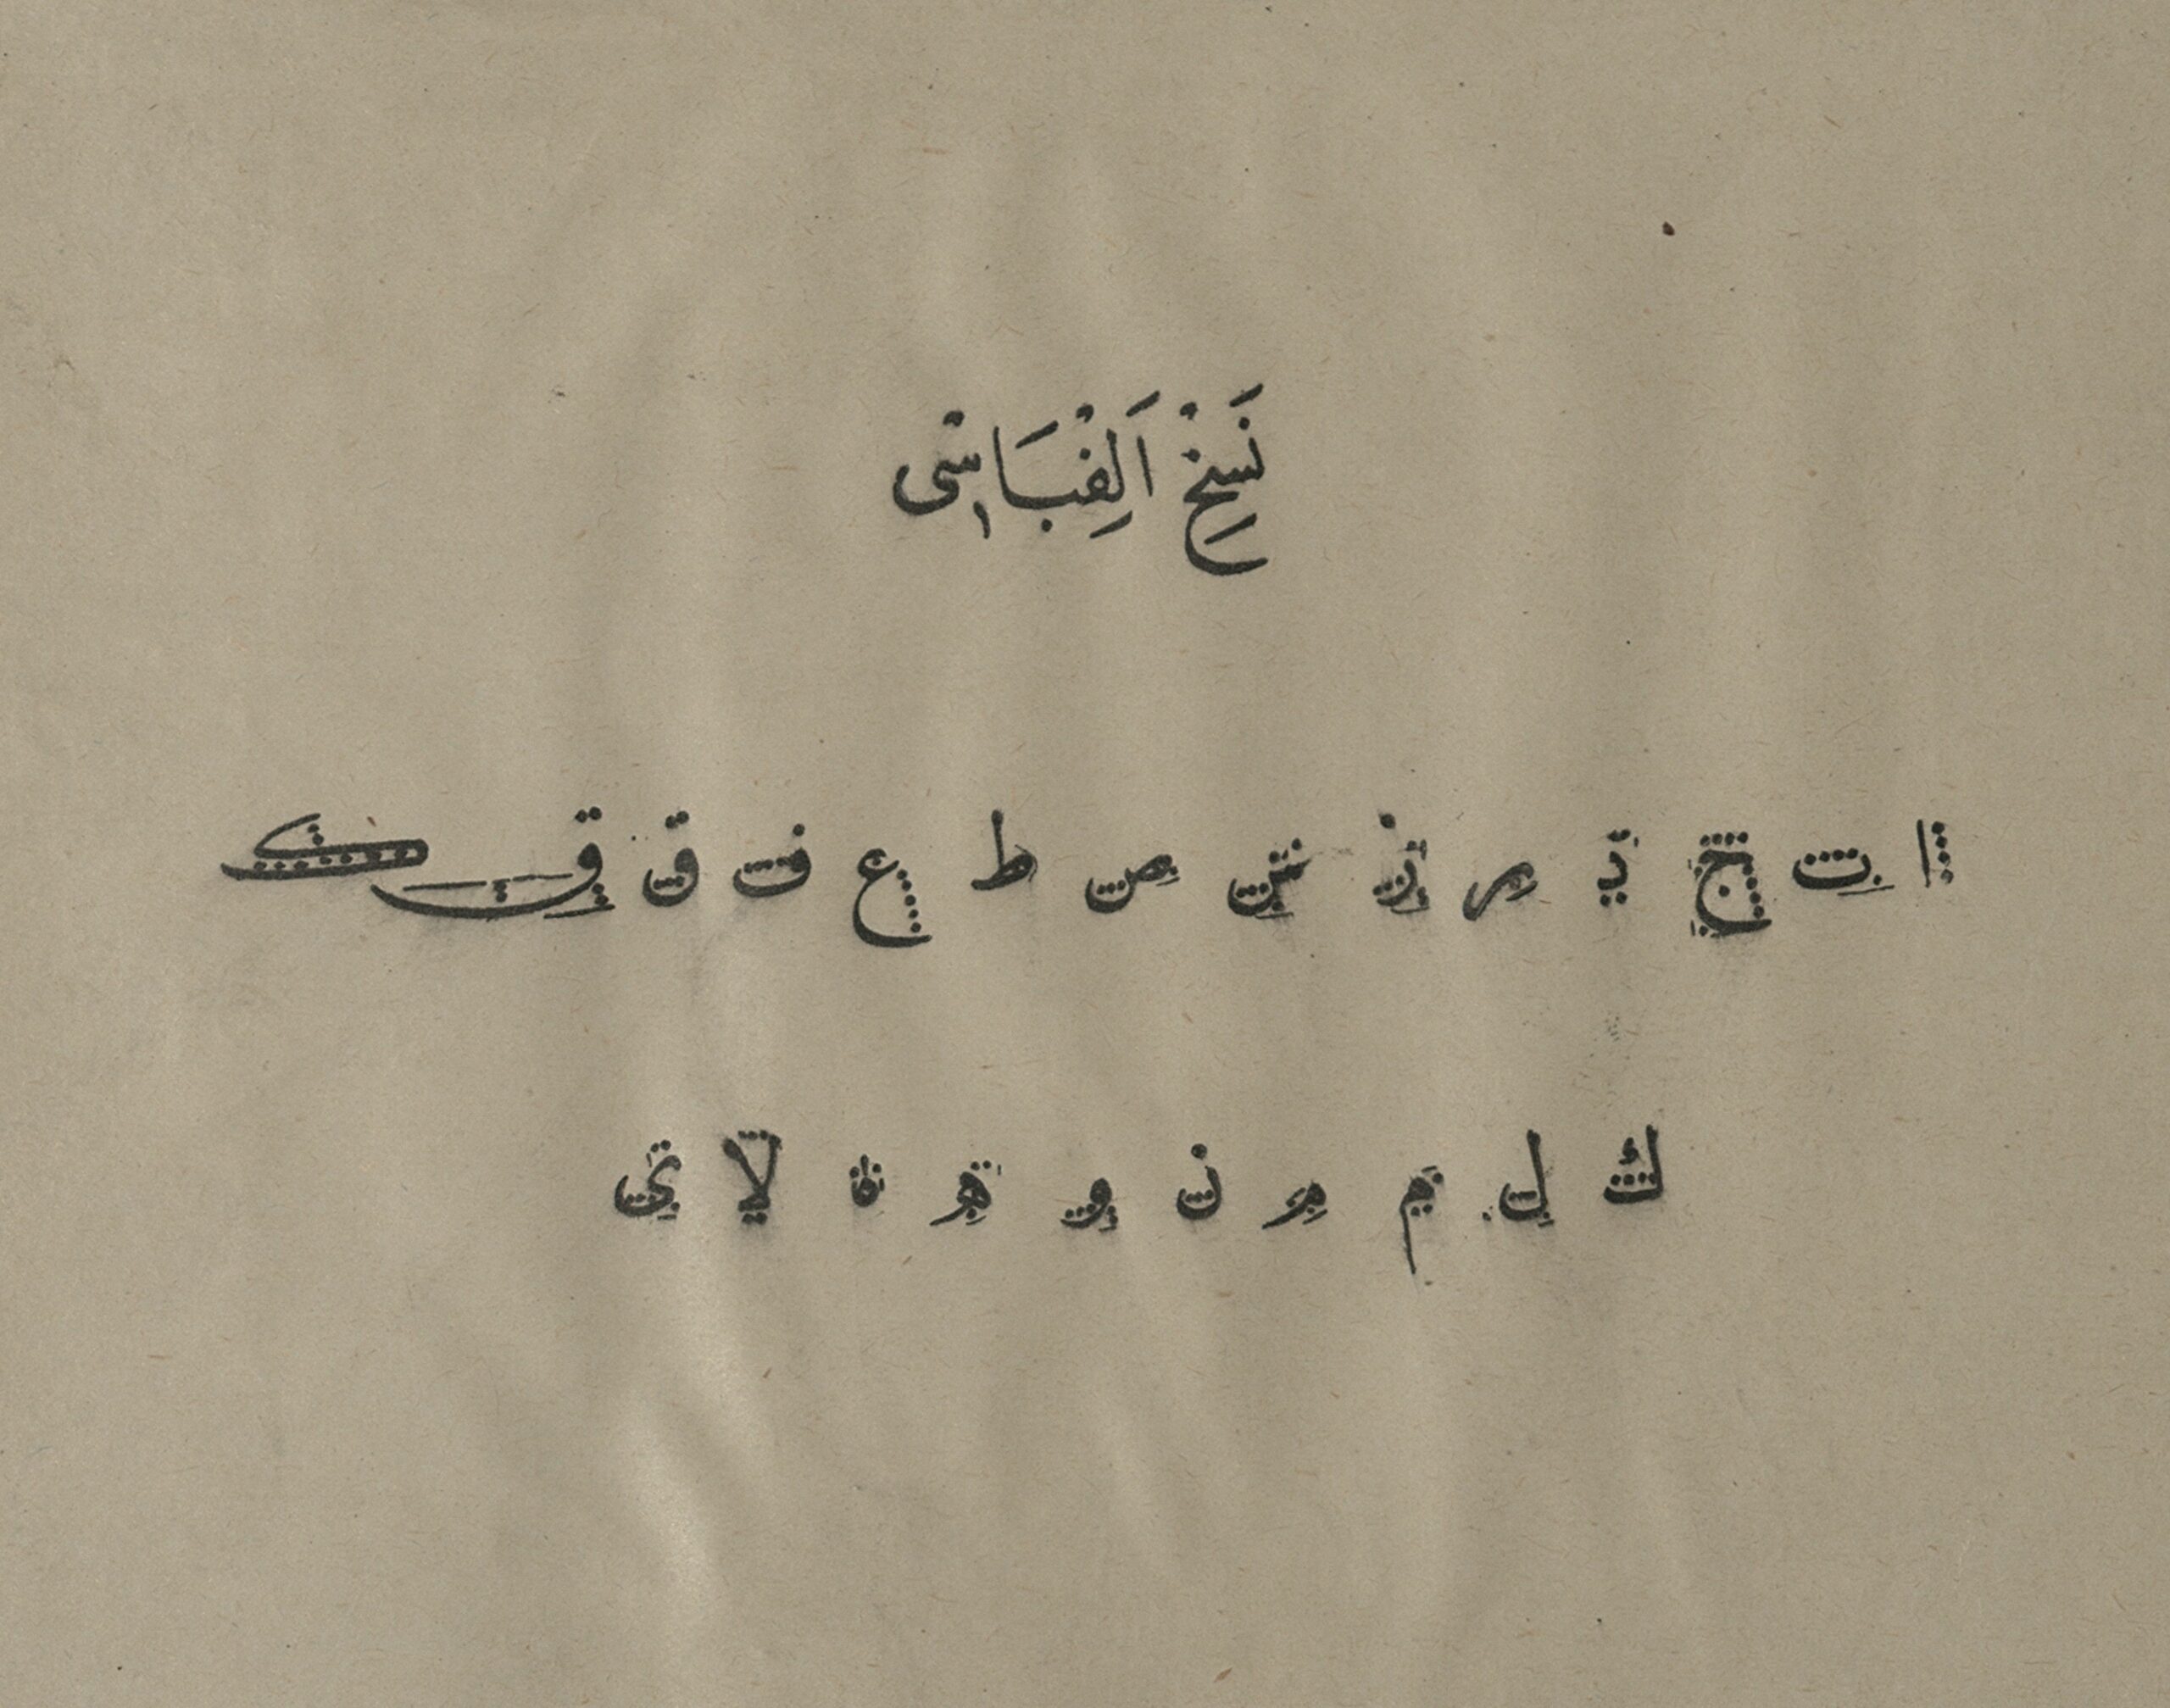 نَسِخْ اَلِفْبَاسْی
ا ب ج د ر ز س ص ط ع ف ق ق ك
ك ل م م ن و ه ه لا ی